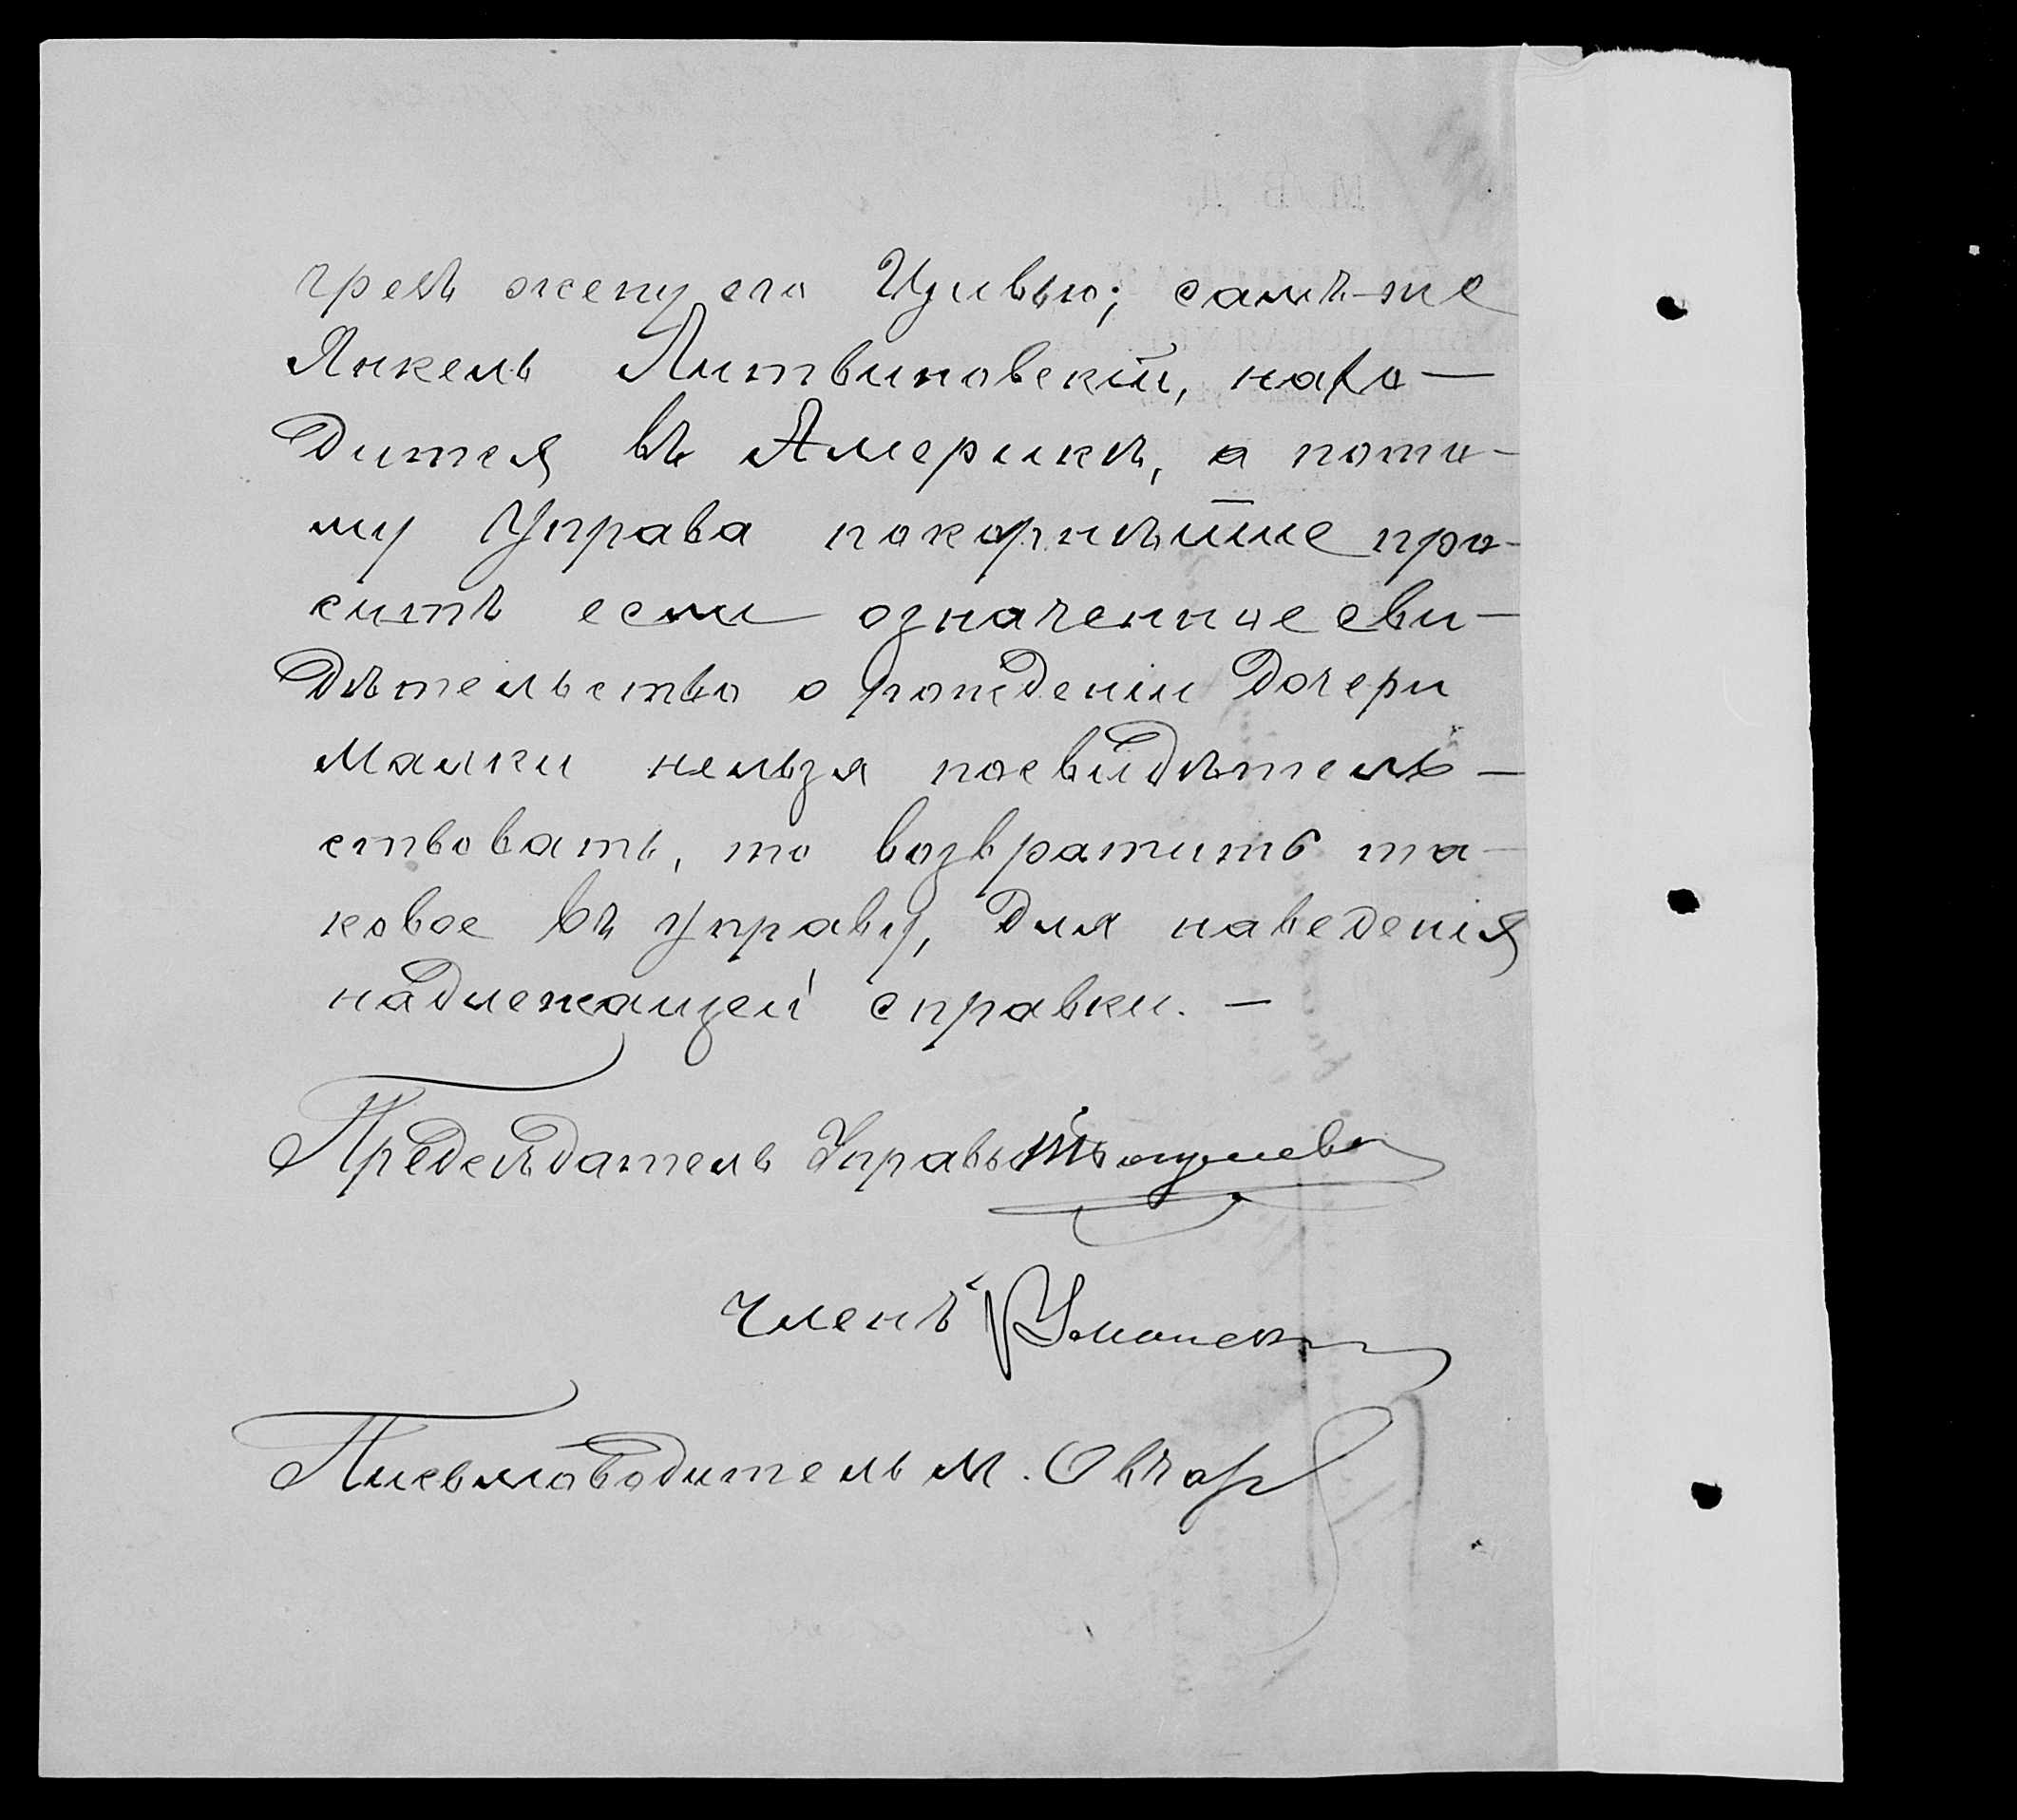 чрезъ жену его Цивью; самъ-же
Янкель Литвиновскій, нахо-
дится въ Америкѣ, а пото-
му Управа покорнѣйше про-
ситъ если означенное сви-
дѣтельство о рожденіи дочери
Малки нельзя посвидѣтель-
ствовать, то возвратить та-
ковое въ управу, для наведенія
надлежащей справки. —
Предсѣдатель Управы
Членъ
Письмоводитель М. Овчар